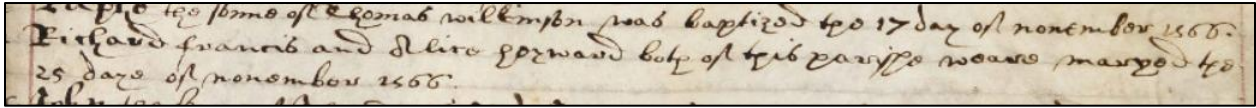 the sonne of Thomas wilkinson was baptized the 17 day of nonember 1566.
Richard francis and Alice heyward both of this parishe weare maryed the
25 daye of nonember 1566.